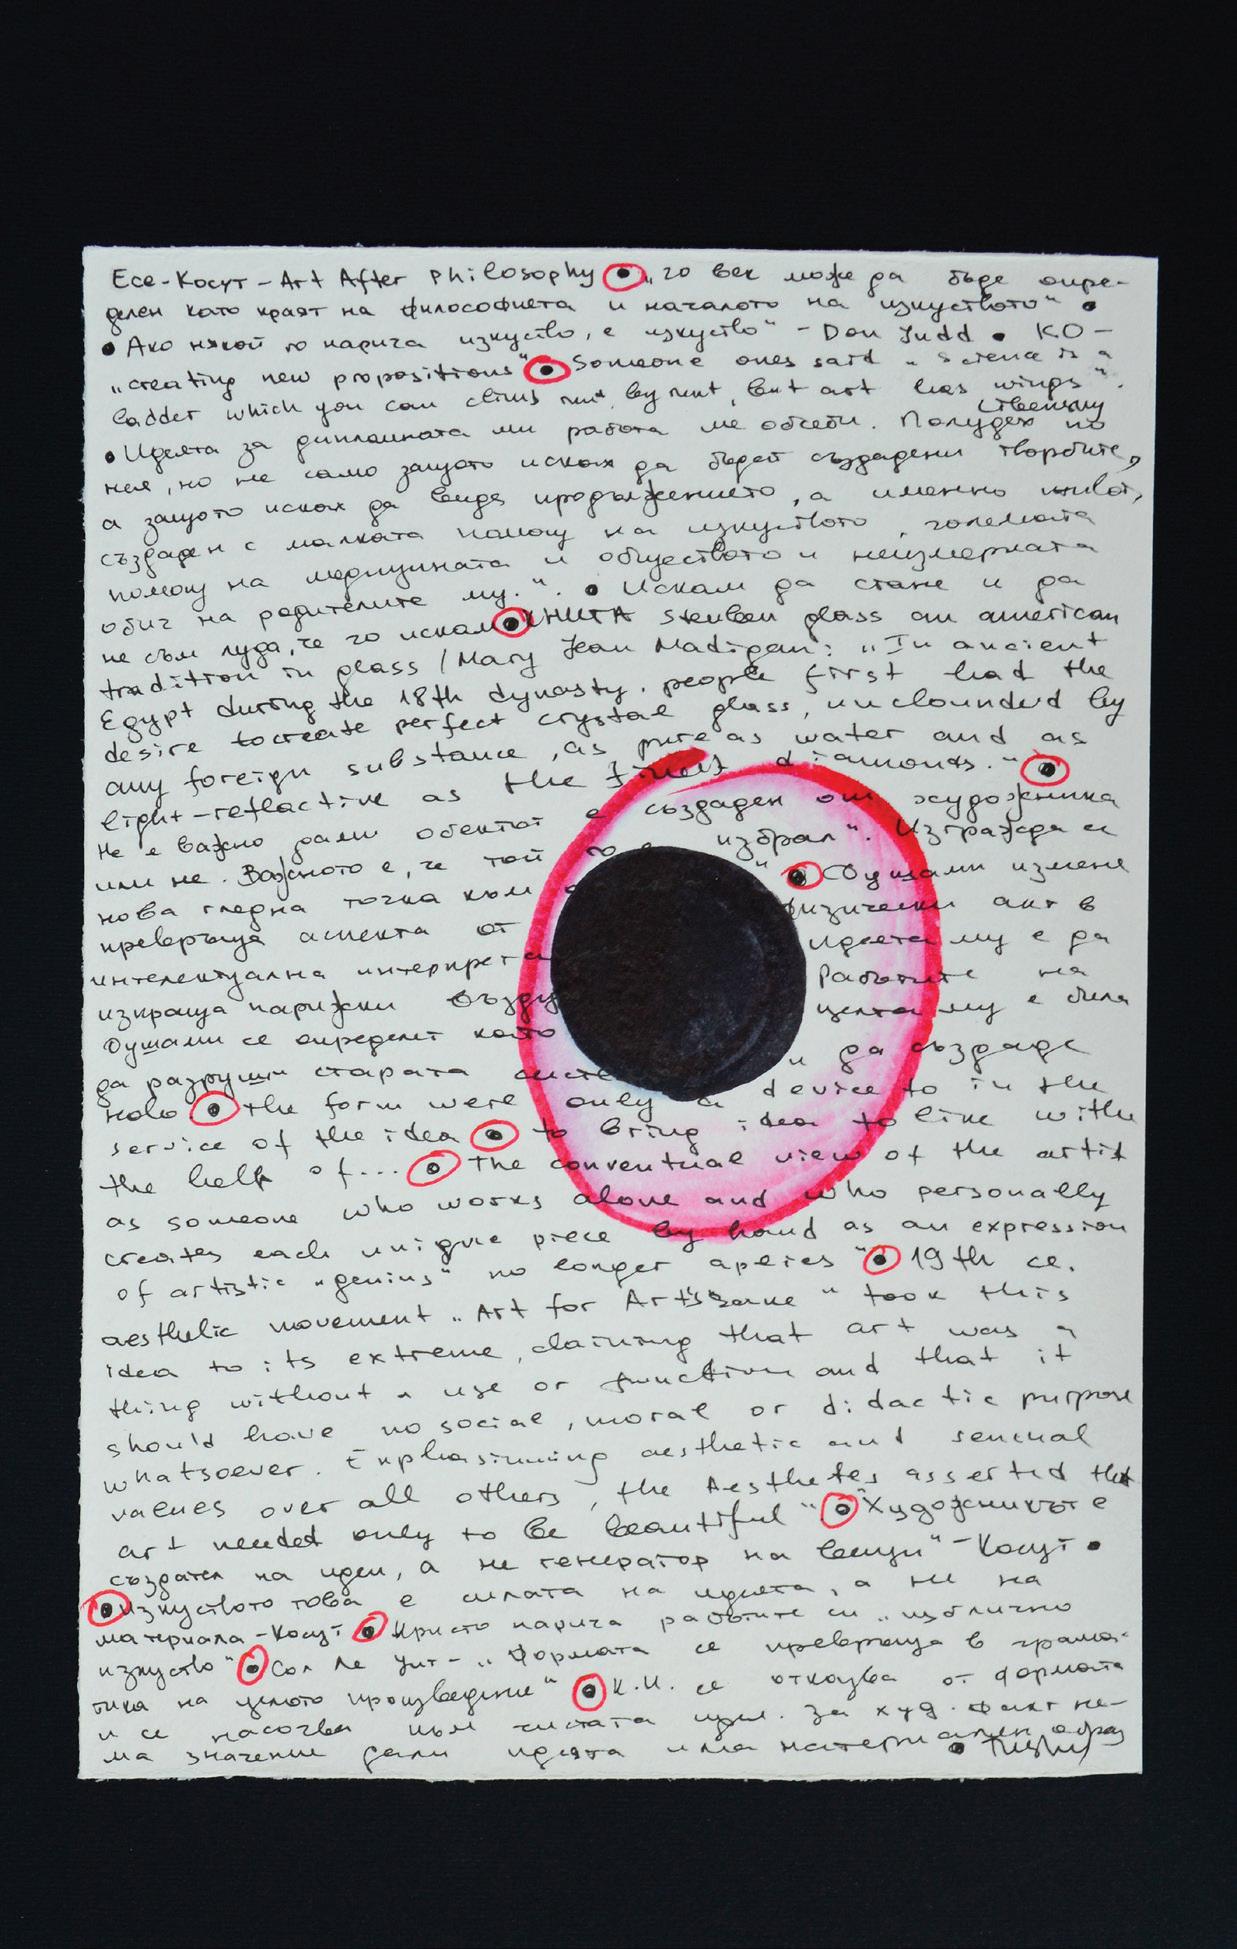 Есе-Косут-Art After Philosophy • „20 век може да бъде опре-
делен като краят на философията и началото на изкуството“ •
• Ако някой го нарича изкуство, е изкуство“ - Don Judd • КО -
„creating new propositions“ • Someone ones said „Science is a
ladder which you can climb by , but art has wings“.
• Идеята за дипломната ми работа ме обсеби. Полудях по
нея, но не само защото исках да бъдат създадени творбите,
а защото исках да видя продължението, а именно живот,
създаден с малката помощ на изкуството, голямата
помощ на медицината и обществото и неизмерната
обич на родителите му.“. • Искам да стане и да
не съм луда, че го искам • КНИГА Steuben glass an american
tradition in glass / Mary Jean Madigan: „In ancient
Egypt during the 18th dynasty, people first had the
desire to create perfect crystal glass, unclounded by
any foreign substance, as pure as water and as
light-reflactive as the finest diamonds.“ •
Не е важно дали обектът е създаден от художника
или не. Важното е, че той го е избрал“. Изгражда се
нова гледна точка към “ • Душами измене
превръща аспекта от физически акт в
интелектуална интерпрета Идеята му е да
изпраща парижки въздух Работите на
Душами се определят като целта му е била
да разруши старата систе и да създаде
ново • the form were only a device to in the
service of the idea • to bring idea to line with
the help of... • The conventual view of the artist
as someone who works alone and who personally
creates each unique piece by hand as an expression
of artistic „genius“ no longer aplies “ • 19th ce.
aesthetic movement „Art for Art's sake“ took this
idea to its extreme, claiming that art was a
thing without a use or function and that it
should have no social, moral or didactic purpose
whatsoever. Emphasinning aesthetic and sensual
values over all others, the Aesthetes asserted that
art needed only to be beautiful“ • „Художникът е
създател на идеи, а не генератор на вещи“ - Косут •
• изкуството това е силата на идеята, а не на
материала - Косут • Кристо нарича работите си „публично
изкуство“ • Сол Ле Уит - „Формата се превръща в грама-
тика на цялото произведение“ • К.И. се отказва от формата
и се насочва към чистата идея. За худ. факт ня-
ма значение дали идеята има материален образ